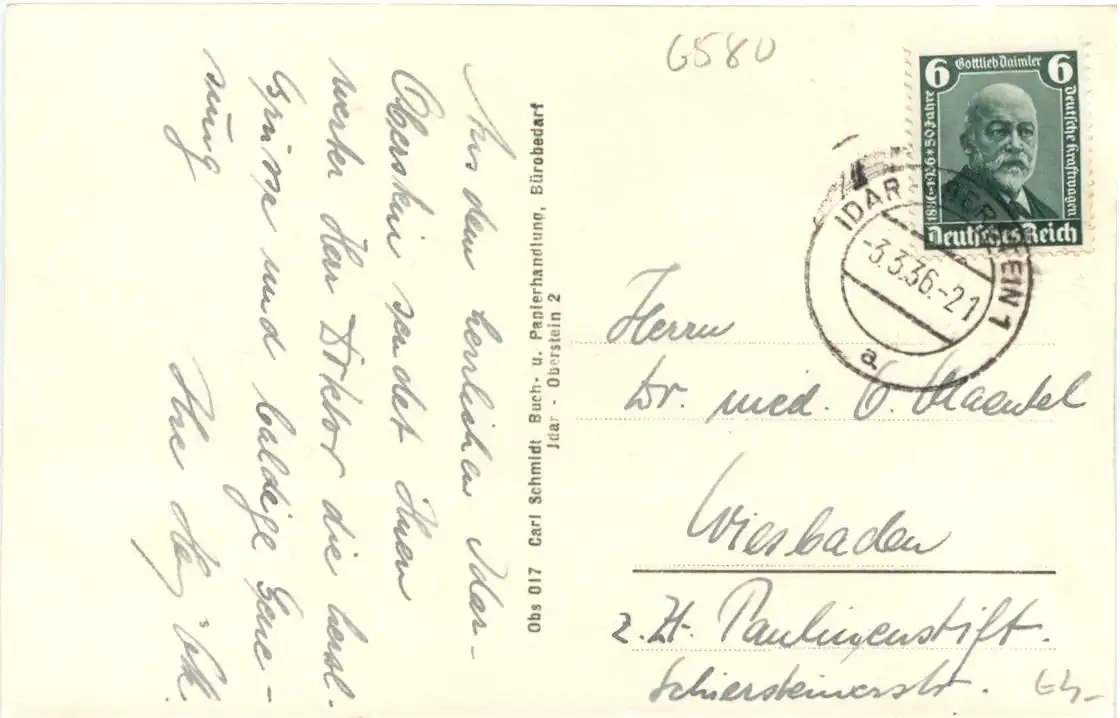 6580
6 Gottlieb Daimler 6
1886-1936 * 50 Jahre
Deutsche Kraftwagen
Deutsches Reich
IDAR-OBERSTEIN 1
-3.3.36.-21
a
Aus dem herrlichen Idar-
Oberstein sendet Ihnen
werter Herr Doktor die herzl.
Grüsse und baldige Gene-
sung
Ihre
Obs 017 Carl Schmidt Buch- u. Papierhandlung, Bürobedarf
Idar - Oberstein 2
Herrn
Dr. med.
Wiesbaden
z. Zt. Paulinenstift.
Schiersteinerstr.